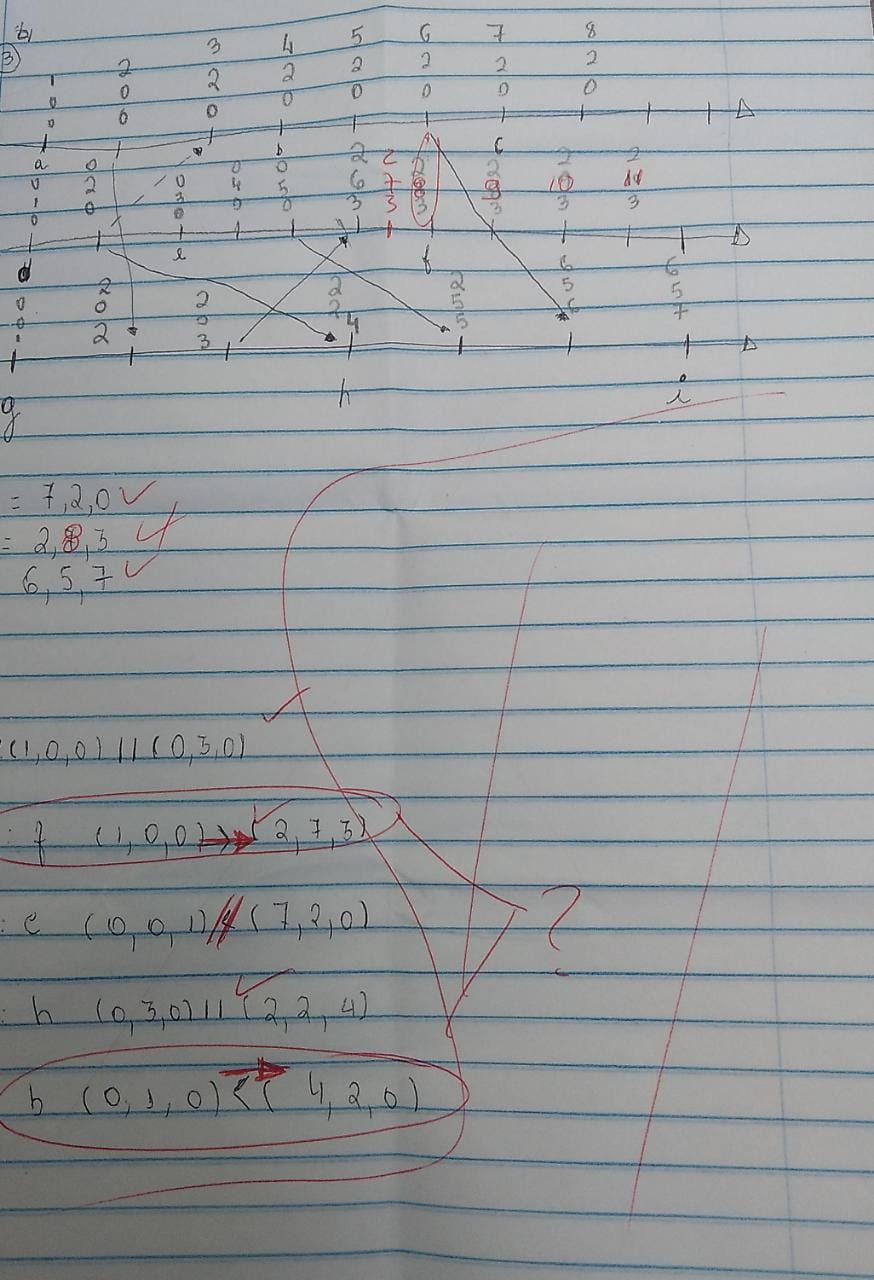 b)
3 4 5 6 7 8
3) 1 2 2 2 2 2 2 2
0 0 2 0 0 0 0 0
0 0 0
a 0 b 2 2 c 2 2
0 2 0 4 5 6 7 9 10 11
1 0 3 0 0 3 3 3 3 3
0 0
d e f
0 2 2 2 2 6 6
0 0 0 2 5 5 5
1 2 3 4 5 6 7
g h i
= 7,2,0 ✓
= 2,8,3
6,5,7 ✓
(1,0,0) || (0,3,0) ✓
: f (1,0,0) → (2,7,3) ✓
: c (0,0,1) // (7,2,0)
?
: h (0,3,0) || (2,2,4) ✓
b (0,1,0) < (4,2,0)